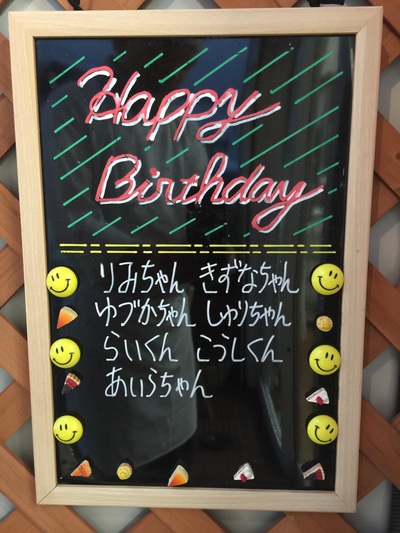 Happy
Birthday
りみちゃん きずなちゃん
ゆづかちゃん しゅりちゃん
らいくん こうしくん
あいらちゃん